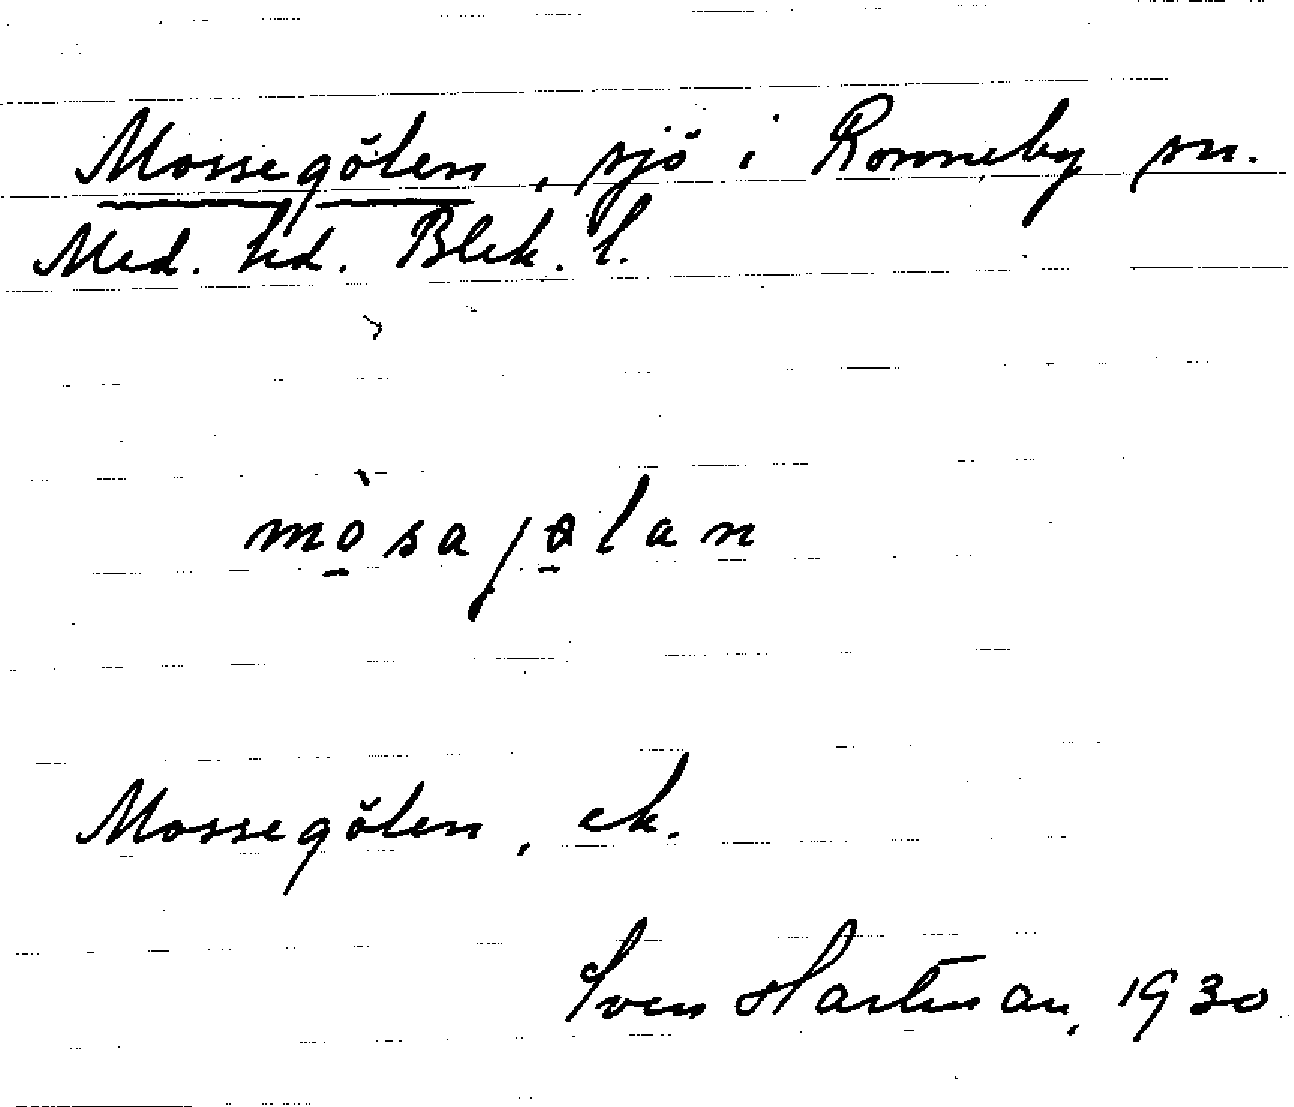 Mossegölen, sjö i Ronneby sn.
Med. hd. Blek. l.
mò̱saɟɵ̱lan
Mossegölen, ek.
Sven Hartman, 1930